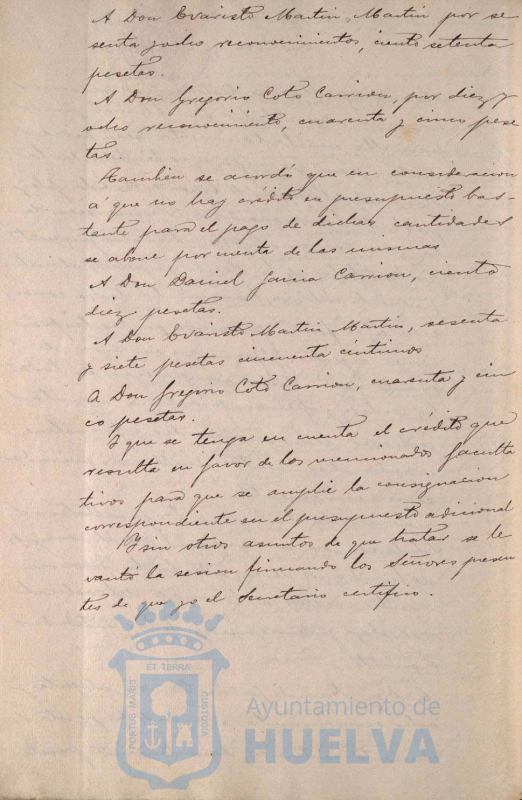 A Don Evaristo Martin Martin por se
senta y ocho reconocimientos, ciento setenta
pesetas.
A Don Gregorio Coto Carrion, por diez y
ocho reconocimiento, cuarenta y cinco pese
tas.
Tambien se acordó que en consideracion
á que no hay crédito en presupuesto bas-
tante para el pago de dichas cantidades
se abone por cuenta de las mismas
A Don Daniel Garcia Carrion, ciento
diez pesetas.
A Don Evaristo Martin Martin, sesenta
y siete pesetas cincuenta céntimos
A Don Gregorio Coto Carrion, cuarenta y cin
co pesetas.
Y que se tenga en cuenta el crédito que
resulta en favor de los mencionados faculta
tivos para que se amplie la consignacion
correspondiente en el presupuesto adicional
Y sin otros asuntos de que tratar se le
vantó la sesion firmando los Señores presen
tes de que yo el Secretario certifico.
ET TERRÆ
PORTUS MARIS
CUSTODIA
Ayuntamiento de
HUELVA